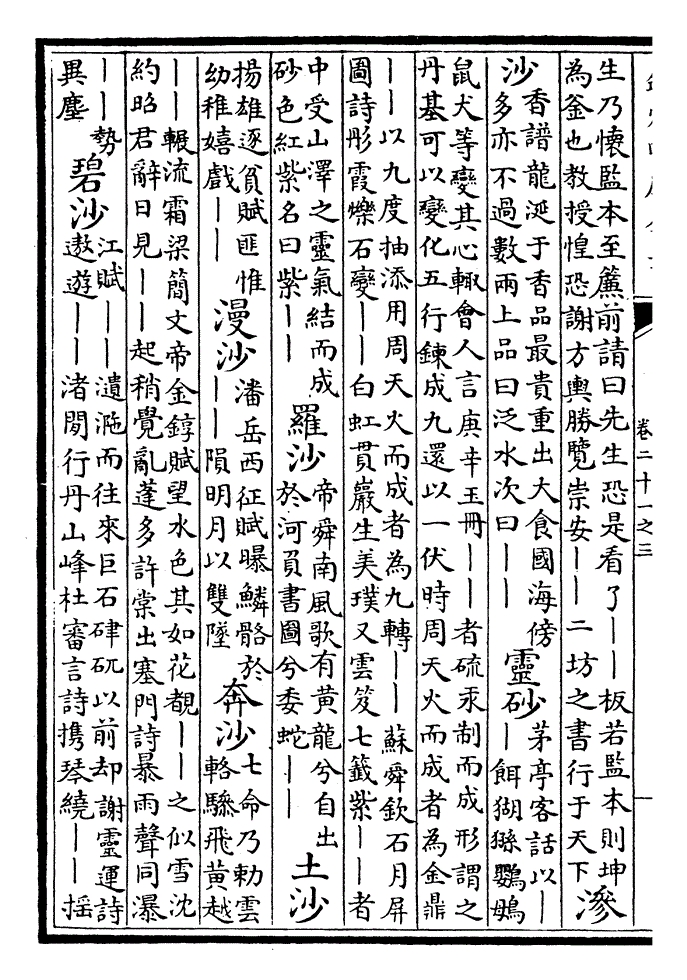 卷二十一之三
生乃懷監本至簾前請曰先生恐是看了——板若監本則坤
為釜也教授惶恐謝方輿勝覽崇安——二坊之書行于天下
滲
沙
香譜龍涎于香品最貴重出大食國海傍
多亦不過數兩上品曰泛水次曰——
靈砂
茅亭客話以—
—餌猢猻鸚鵡
鼠犬等變其心輒會人言庚辛玉冊——者硫汞制而成形謂之
丹基可以變化五行鍊成九還以一伏時周天火而成者為金鼎
——以九度抽添用周天火而成者為九轉——蘇舜欽石月屏
圖詩彤霞爍石變——白虹貫巖生美璞又雲笈七籤紫——者
中受山澤之靈氣結而成
砂色紅紫名曰紫——
羅沙
帝舜南風歌有黃龍兮自出
於河負書圖兮委蛇——
土沙
揚雄逐貧賦匪惟
幼稚嬉戲——
漫沙
潘岳西征賦曝鱗骼於
——隕明月以雙墜
奔沙
七命乃勅雲
輅驂飛黃越
——輾流霜梁簡文帝金錞賦望水色其如花覩——之似雪沈
約昭君辭日見——起稍覺亂蓬多許棠出塞門詩暴雨聲同瀑
——勢
異塵
碧沙
江賦——瀢沲而往來巨石硉矹以前却謝靈運詩
遨遊——渚閒行丹山峰杜審言詩携琴繞——搖